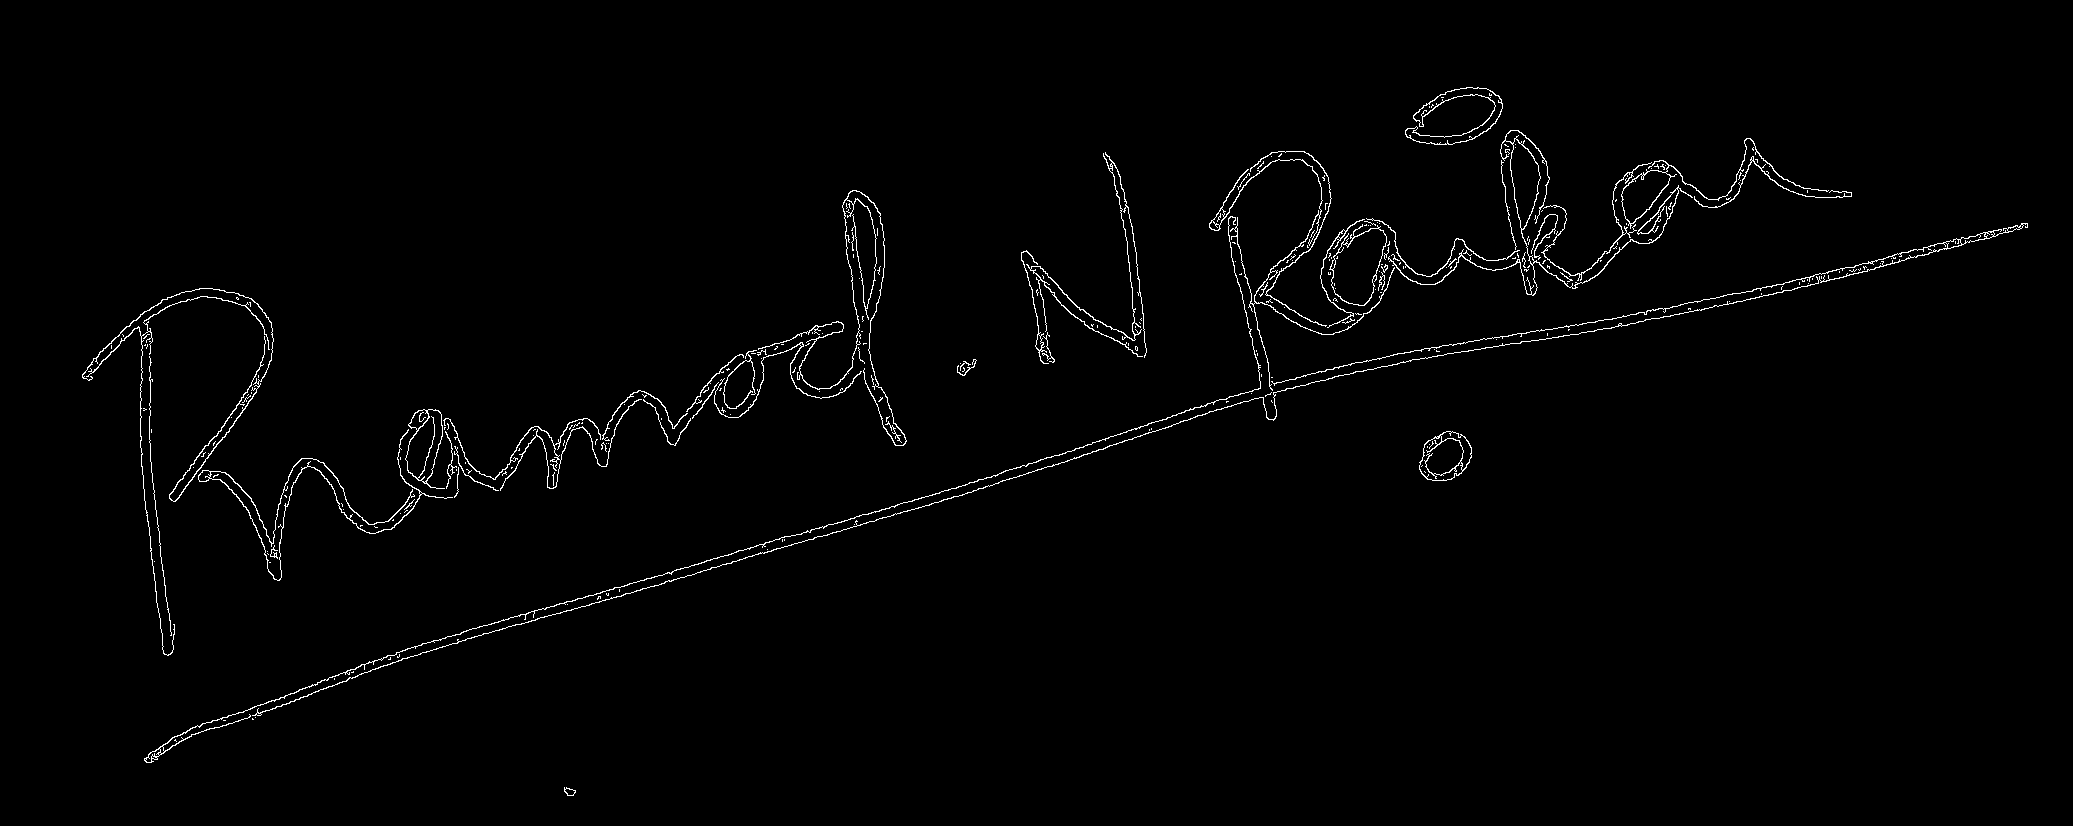 Pramod . N Raikar